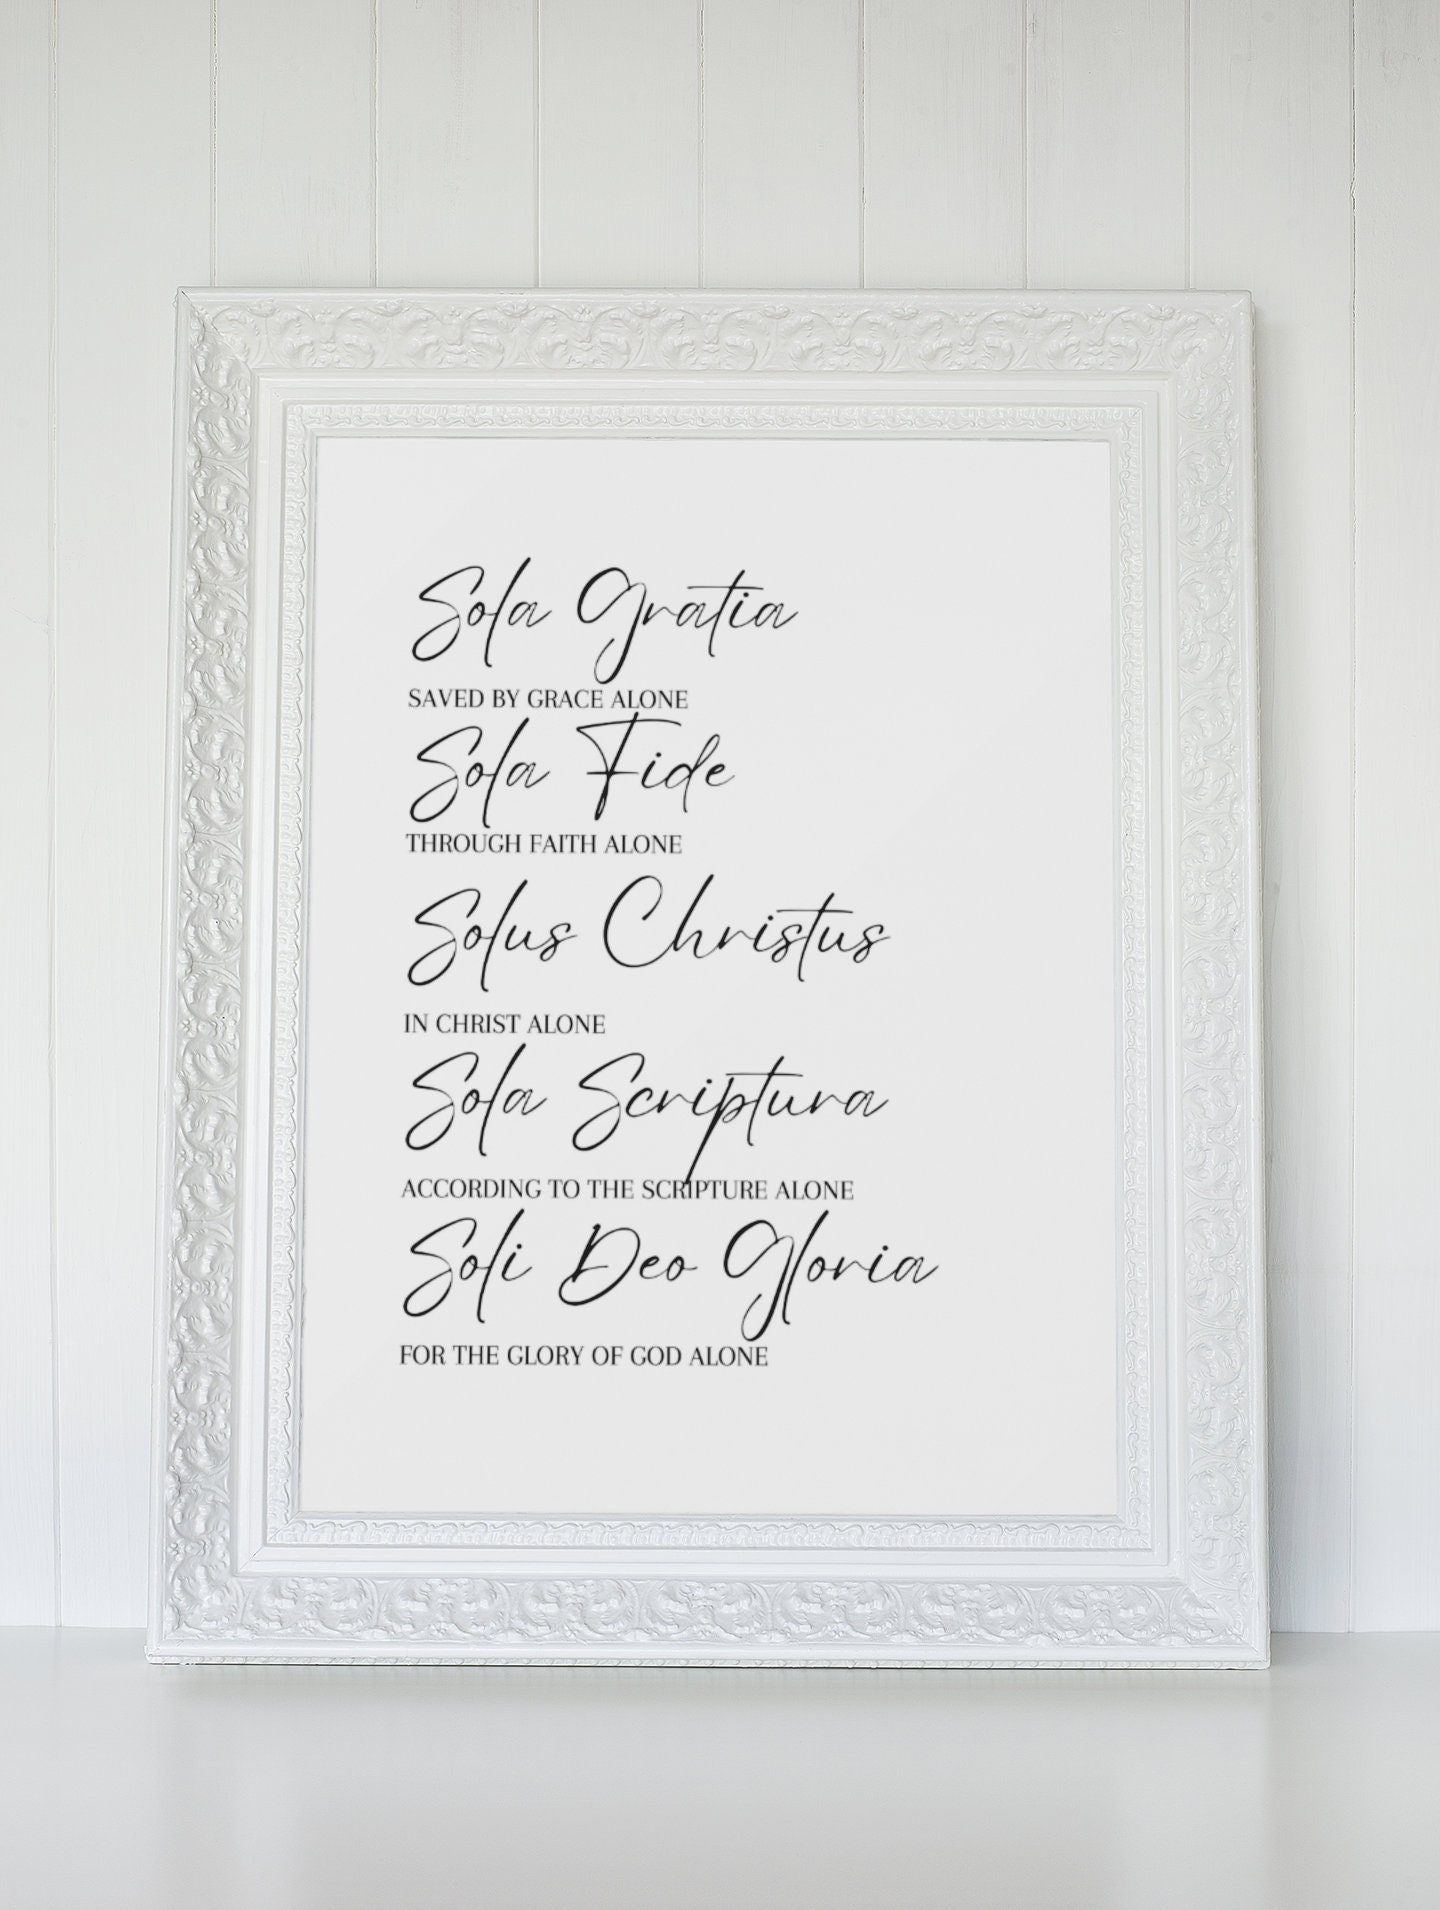 Sola Gratia
SAVED BY GRACE ALONE
Sola Fide
THROUGH FAITH ALONE
Solus Christus
IN CHRIST ALONE
Sola Scriptura
ACCORDING TO THE SCRIPTURE ALONE
Soli Deo Gloria
FOR THE GLORY OF GOD ALONE